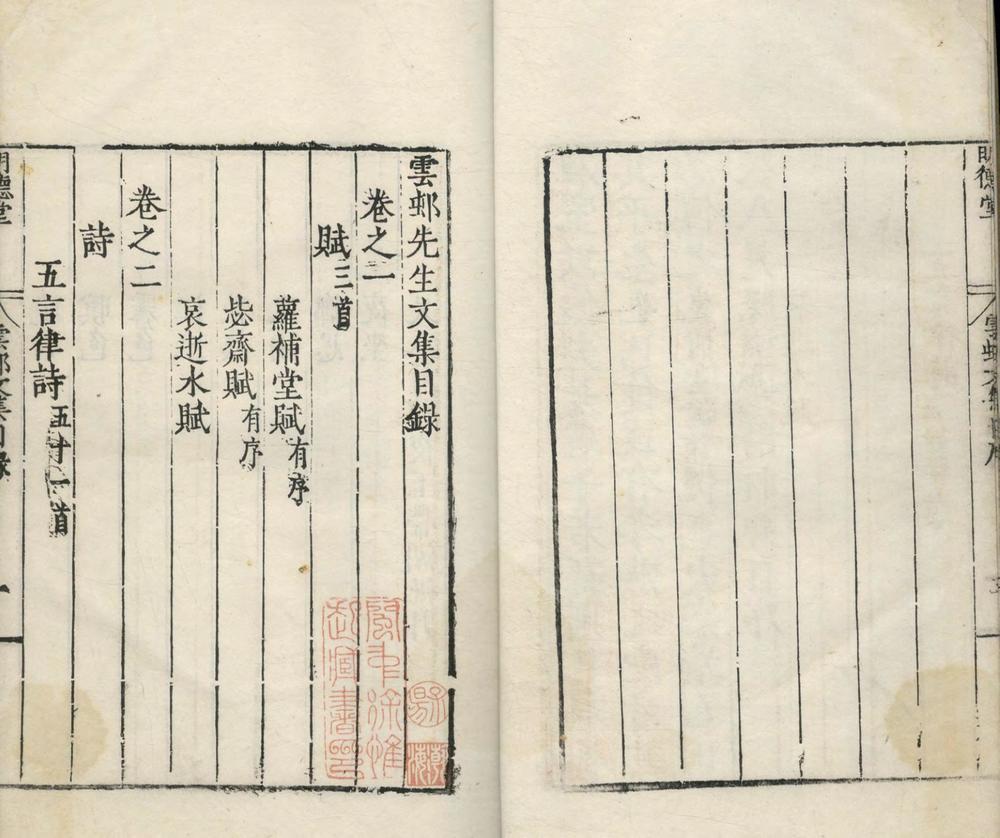 明德堂
雲邨先生文集目錄
卷之一
賦三首
蘿補堂賦有序
毖齋賦有序
哀逝水賦
卷之二
詩
五言律詩五十一首
明德堂
雲邨文集目錄
一